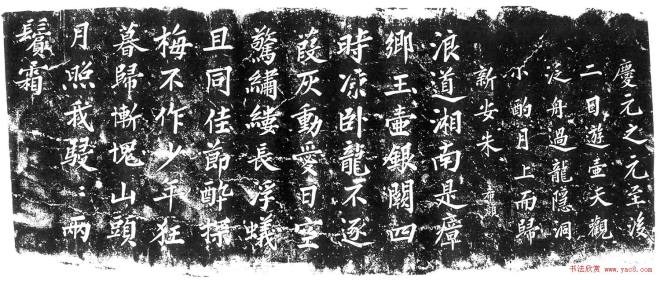 慶元之元至後
二日遊壺天觀
泛舟過龍隱洞
小酌月上而歸
新安朱希顏
浪道湘南是瘴
鄉玉壺銀闕四
時凉卧龍不逐
葭灰動愛日空
驚繡縷長浮蟻
且同佳節醉探
梅不作少年狂
暮歸慚愧山頭
月照我騣〻兩
鬢霜
书法欣赏 www.yac8.com